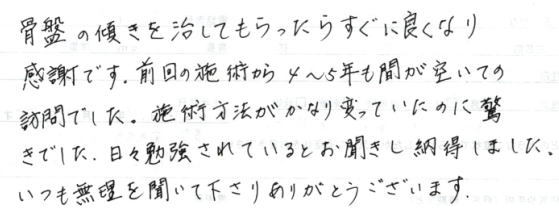 骨盤の傾きを治してもらったらすぐに良くなり
感謝です。前回の施術から4〜5年も間が空いての
訪問でした。施術方法がかなり変っていたのに驚
きでした。日々勉強されているとお聞きし納得しました。
いつも無理を聞いて下さりありがとうございます。